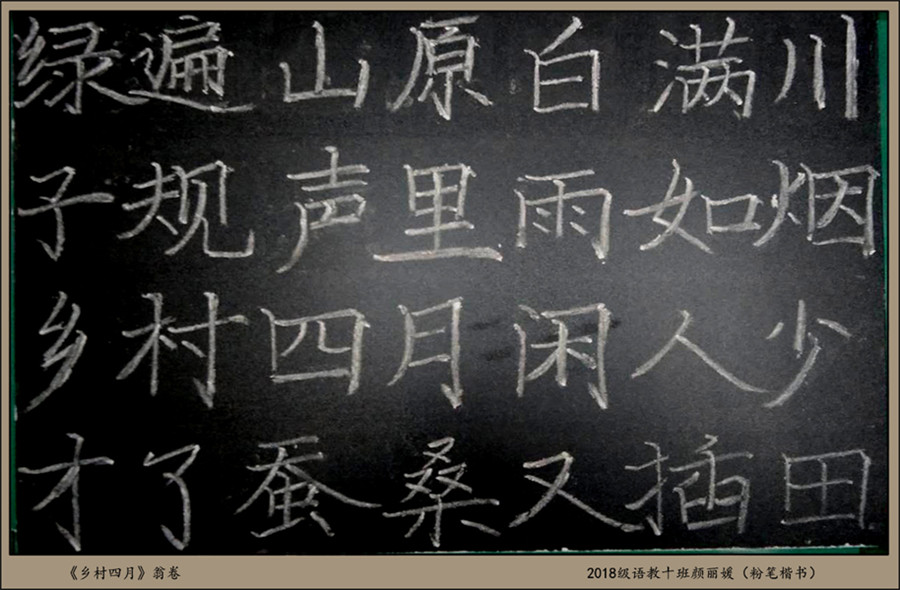 绿遍山原白满川
子规声里雨如烟
乡村四月闲人少
才了蚕桑又插田
《乡村四月》翁卷
2018级语教十班颜丽媛（粉笔楷书）